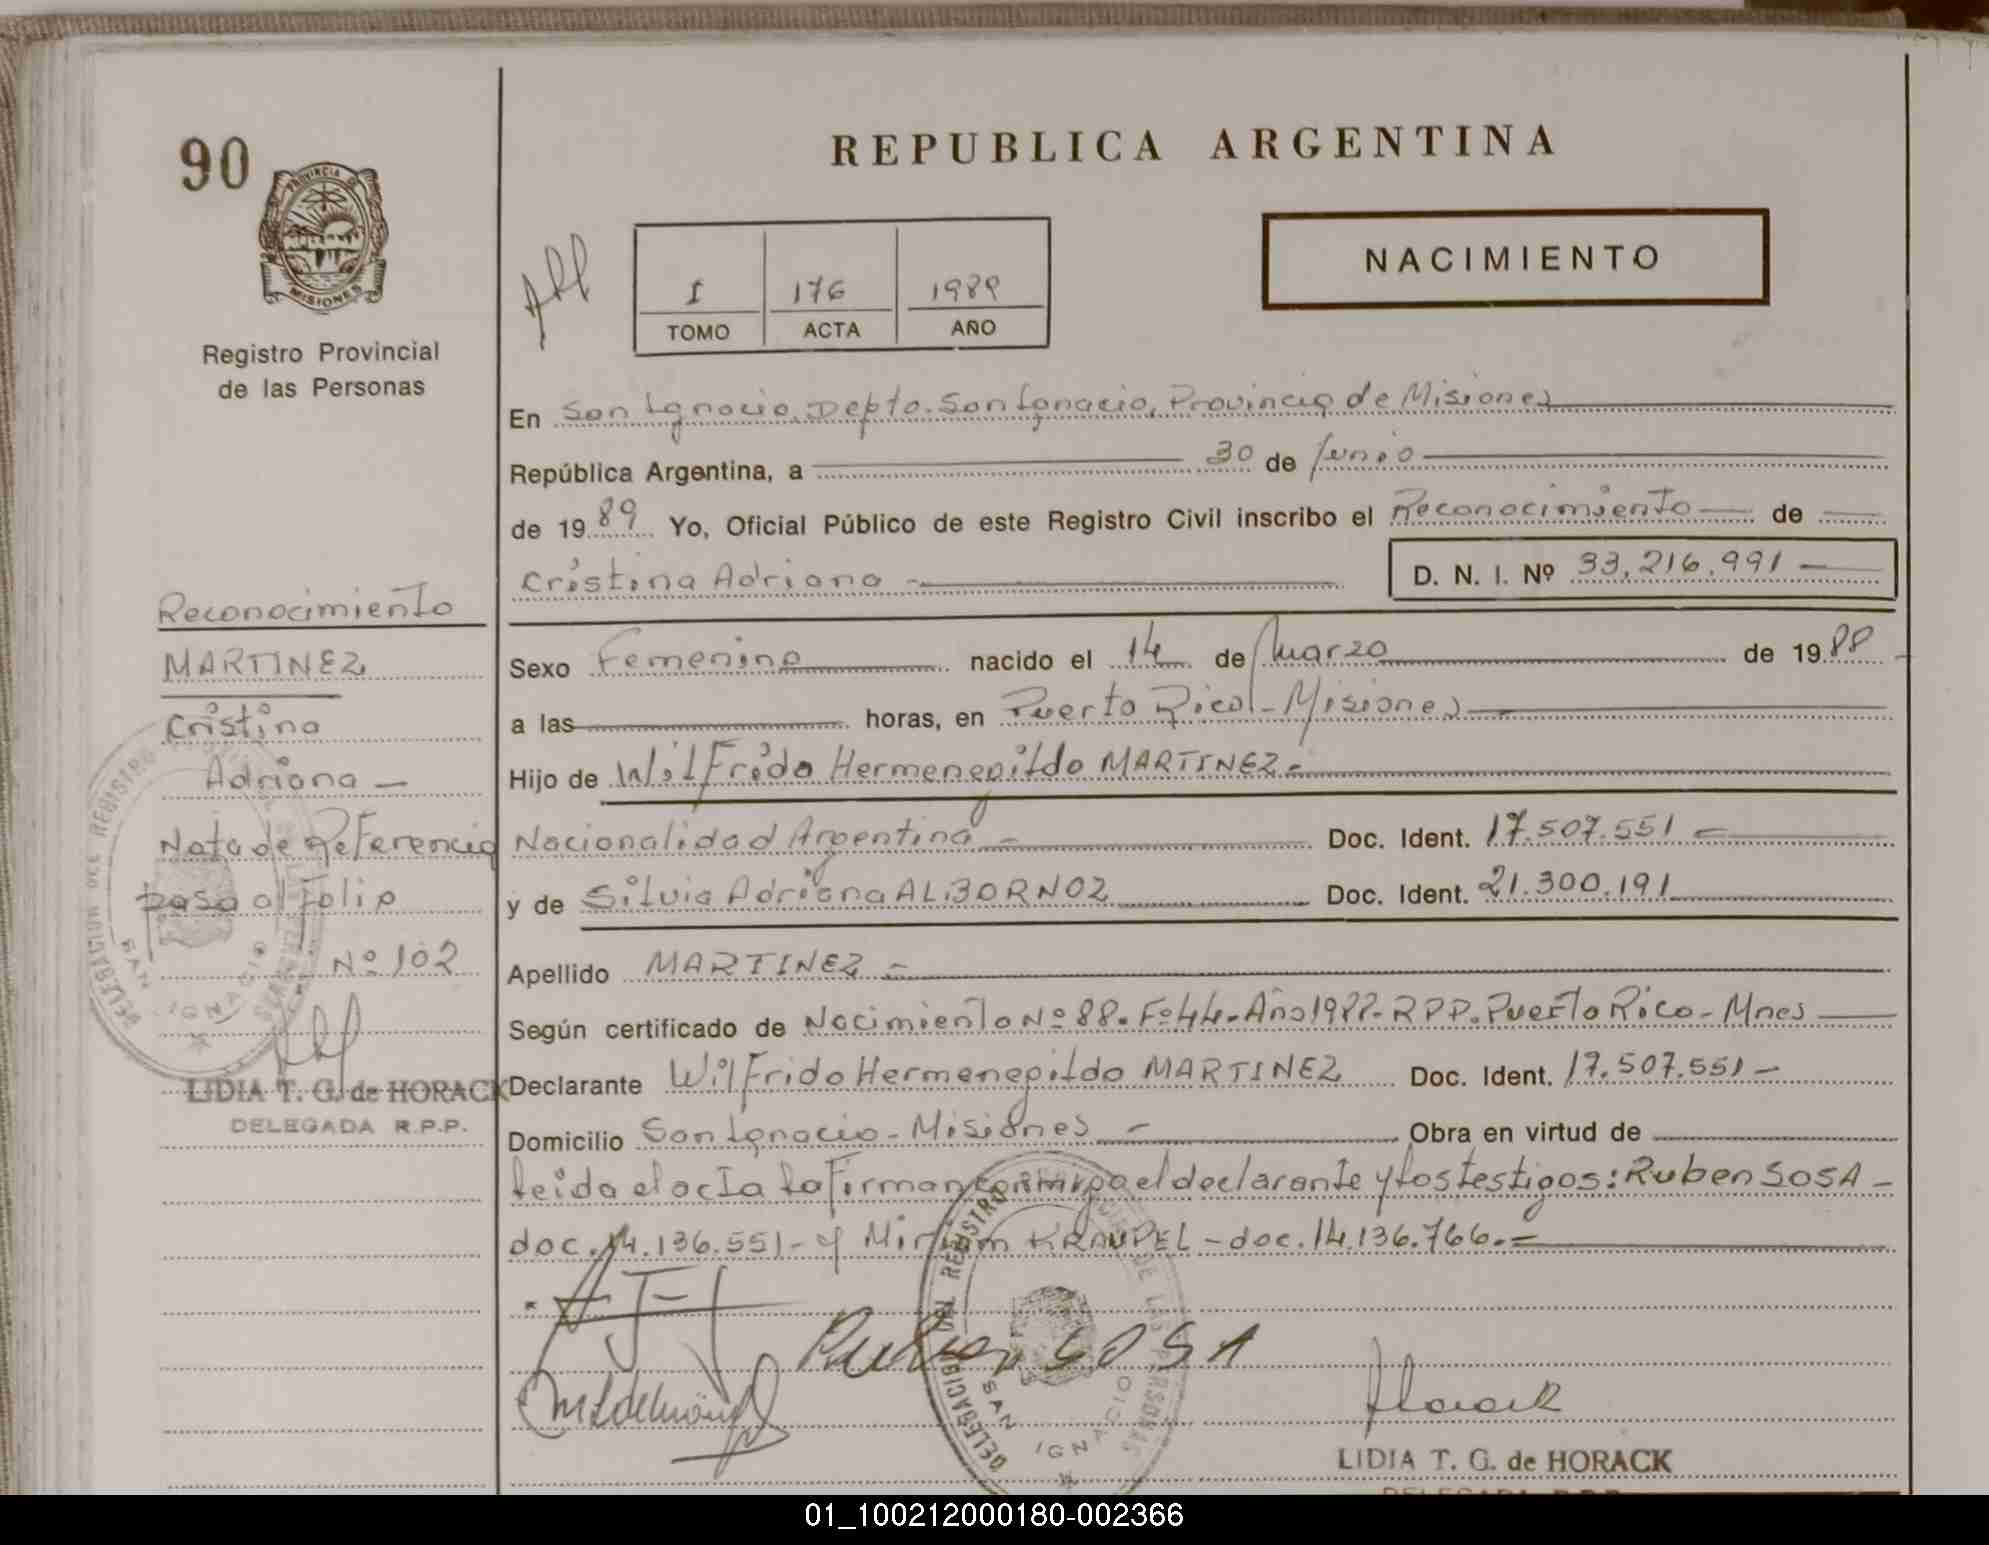 90
PROVINCIA DE
MISIONES
Registro Provincial
de las Personas
REPUBLICA ARGENTINA
NACIMIENTO
I 176 1989
TOMO ACTA AÑO
En San Ignacio, Depto. San Ignacio, Provincia de Misiones
República Argentina, a 30 de Junio
de 1989 Yo, Oficial Público de este Registro Civil inscribo el Reconocimiento de
Cristina Adriana D. N. I. Nº 33.216.991
Sexo Femenino nacido el 14 de Marzo de 1988
a las horas, en Puerto Rico - Misiones
Hijo de Wilfrido Hermenegildo MARTINEZ
Nacionalidad Argentina Doc. Ident. 17.507.551
y de Silvia Adriana ALBORNOZ Doc. Ident. 21.300.191
Apellido MARTINEZ
Según certificado de Nacimiento Nº 88. Fº 44. Año 1988. RPP. Puerto Rico - Mnes
Declarante Wilfrido Hermenegildo MARTINEZ Doc. Ident. 17.507.551
Domicilio San Ignacio - Misiones Obra en virtud de
leida el acta la firman conmigo el declarante y los testigos: Ruben SOSA -
doc. 14.136.551 - y Miriam KRAUPEL - doc. 14.136.766.=
Reconocimiento
MARTINEZ
Cristina
Adriana -
Nota de Referencia
pasa al folio
Nº 102
LIDIA T. G. de HORACK
DELEGADA R.P.P.
DELEGACION DEL REGISTRO
SAN IGNACIO
Ruben SOSA
DELEGACION DEL REGISTRO DE LAS PERSONAS
SAN IGNACIO
Horack
LIDIA T. G. de HORACK
DELEGADA R.P.P.
01_100212000180-002366